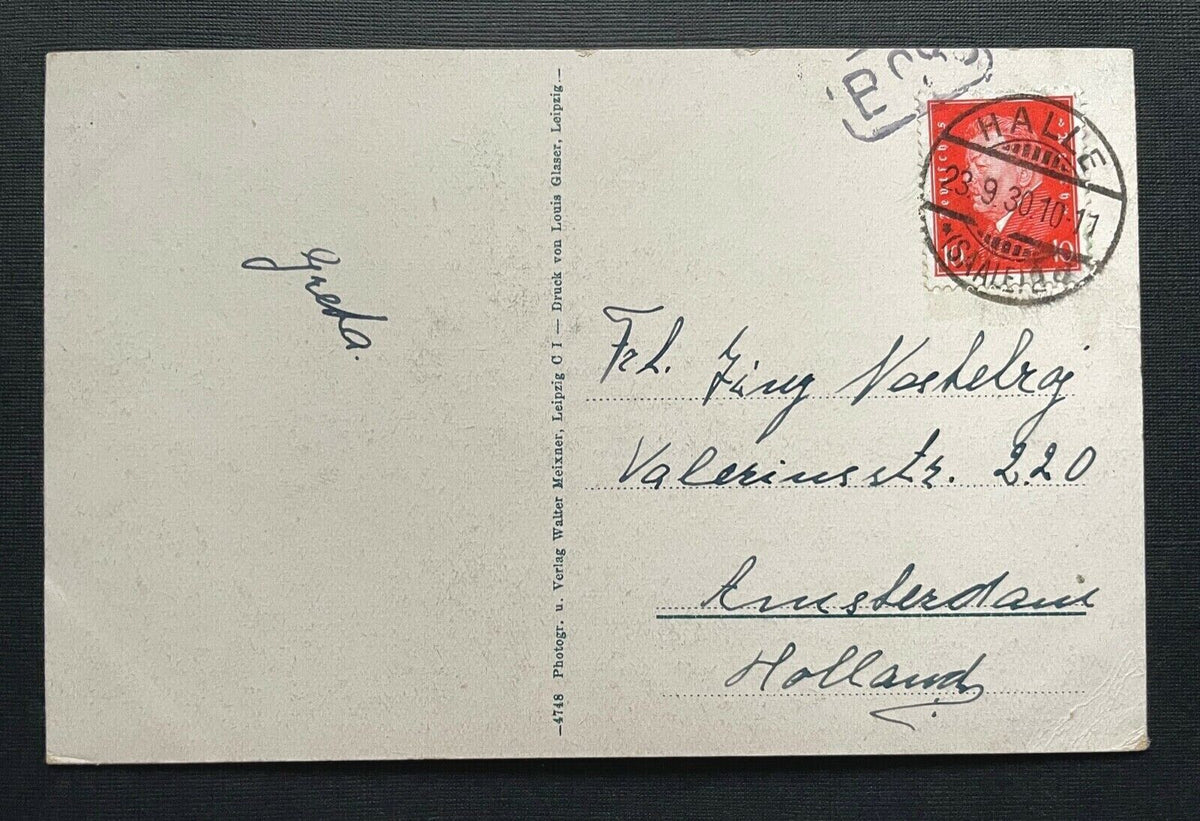 Greda.
-4748 Photogr. u. Verlag Walter Meixner, Leipzig C I — Druck von Louis Glaser, Leipzig.—
HALLE
23.9.30 10-11
* (SAALE)
Deutsches
10 10
Frl.
Valeriusstr. 220
Amsterdam
Holland